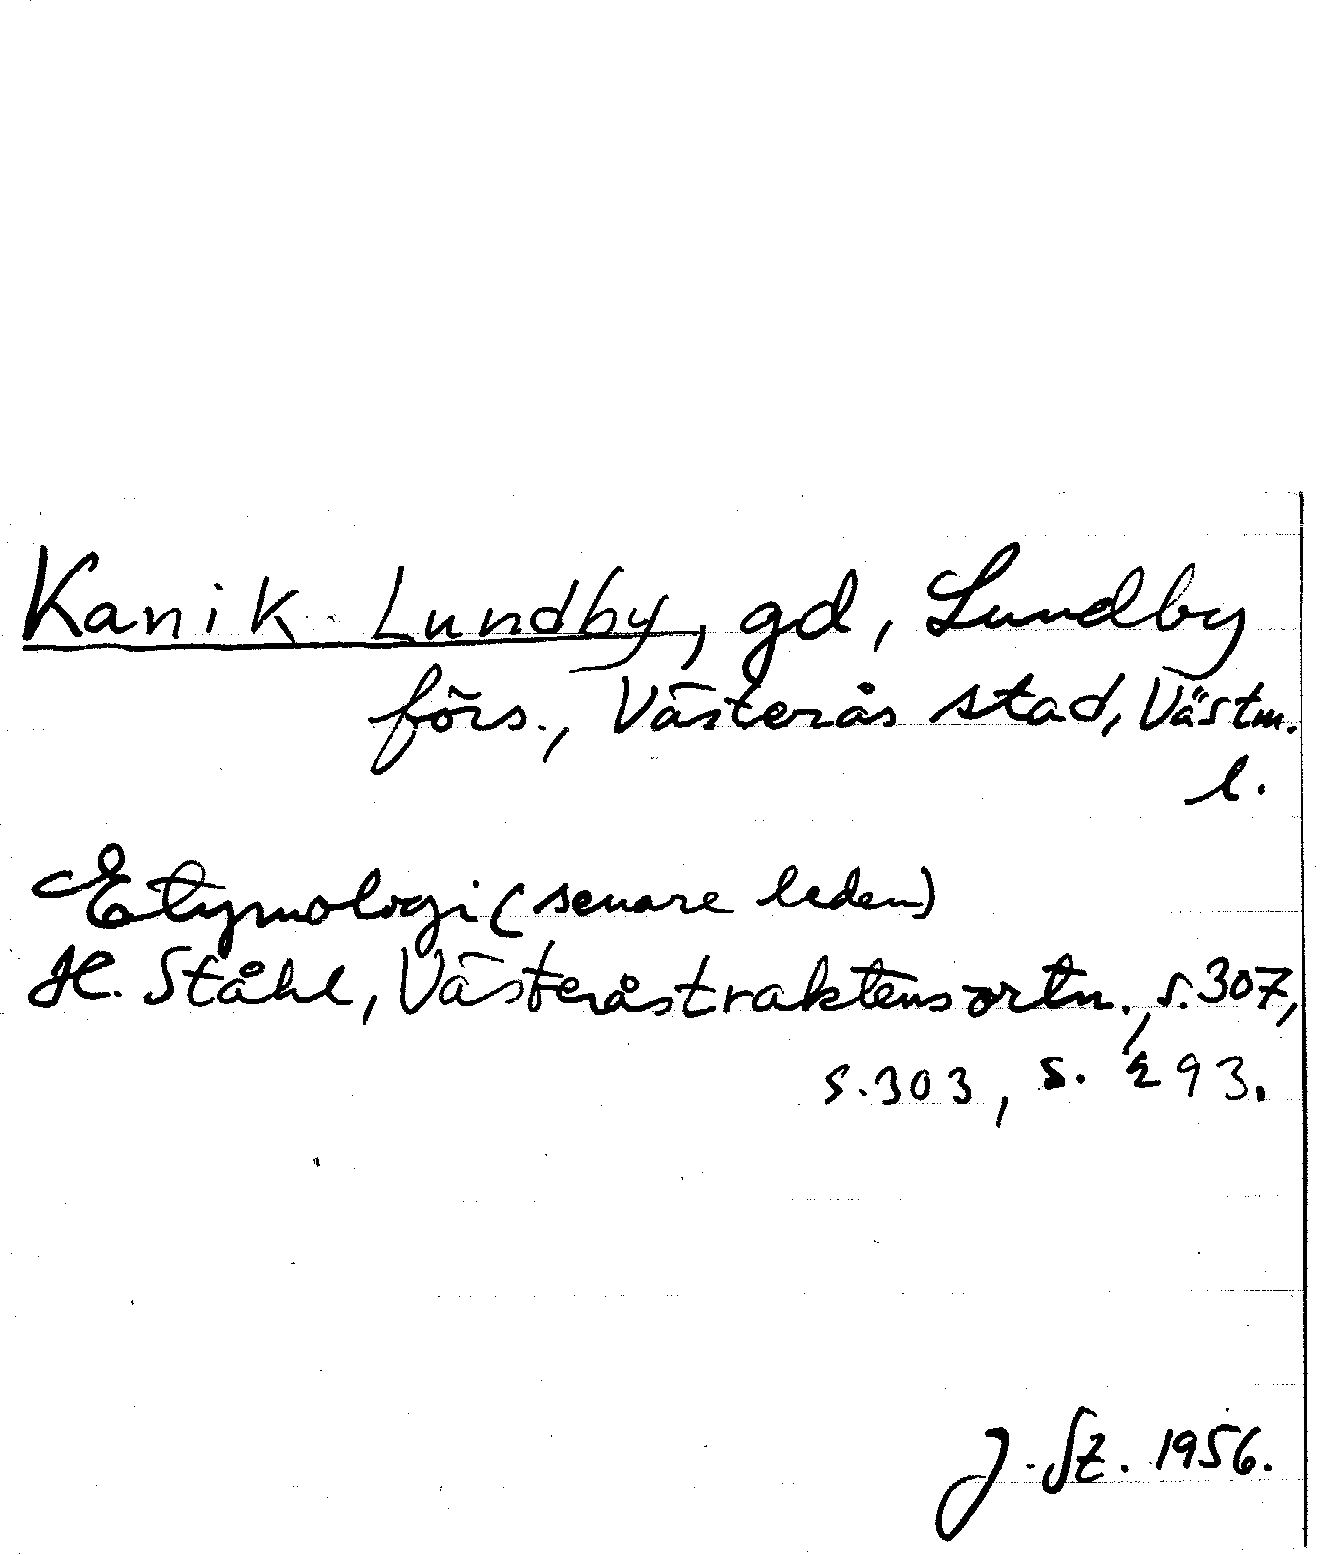 Kanik Lundby, gd, Lundby
förs., Västerås stad, Västm.
l.
Etymologi (senare leden)
H. Ståhl, Västeråstraktens ortn., s. 307,
s. 303, s. 293.
J. Sz. 1956.